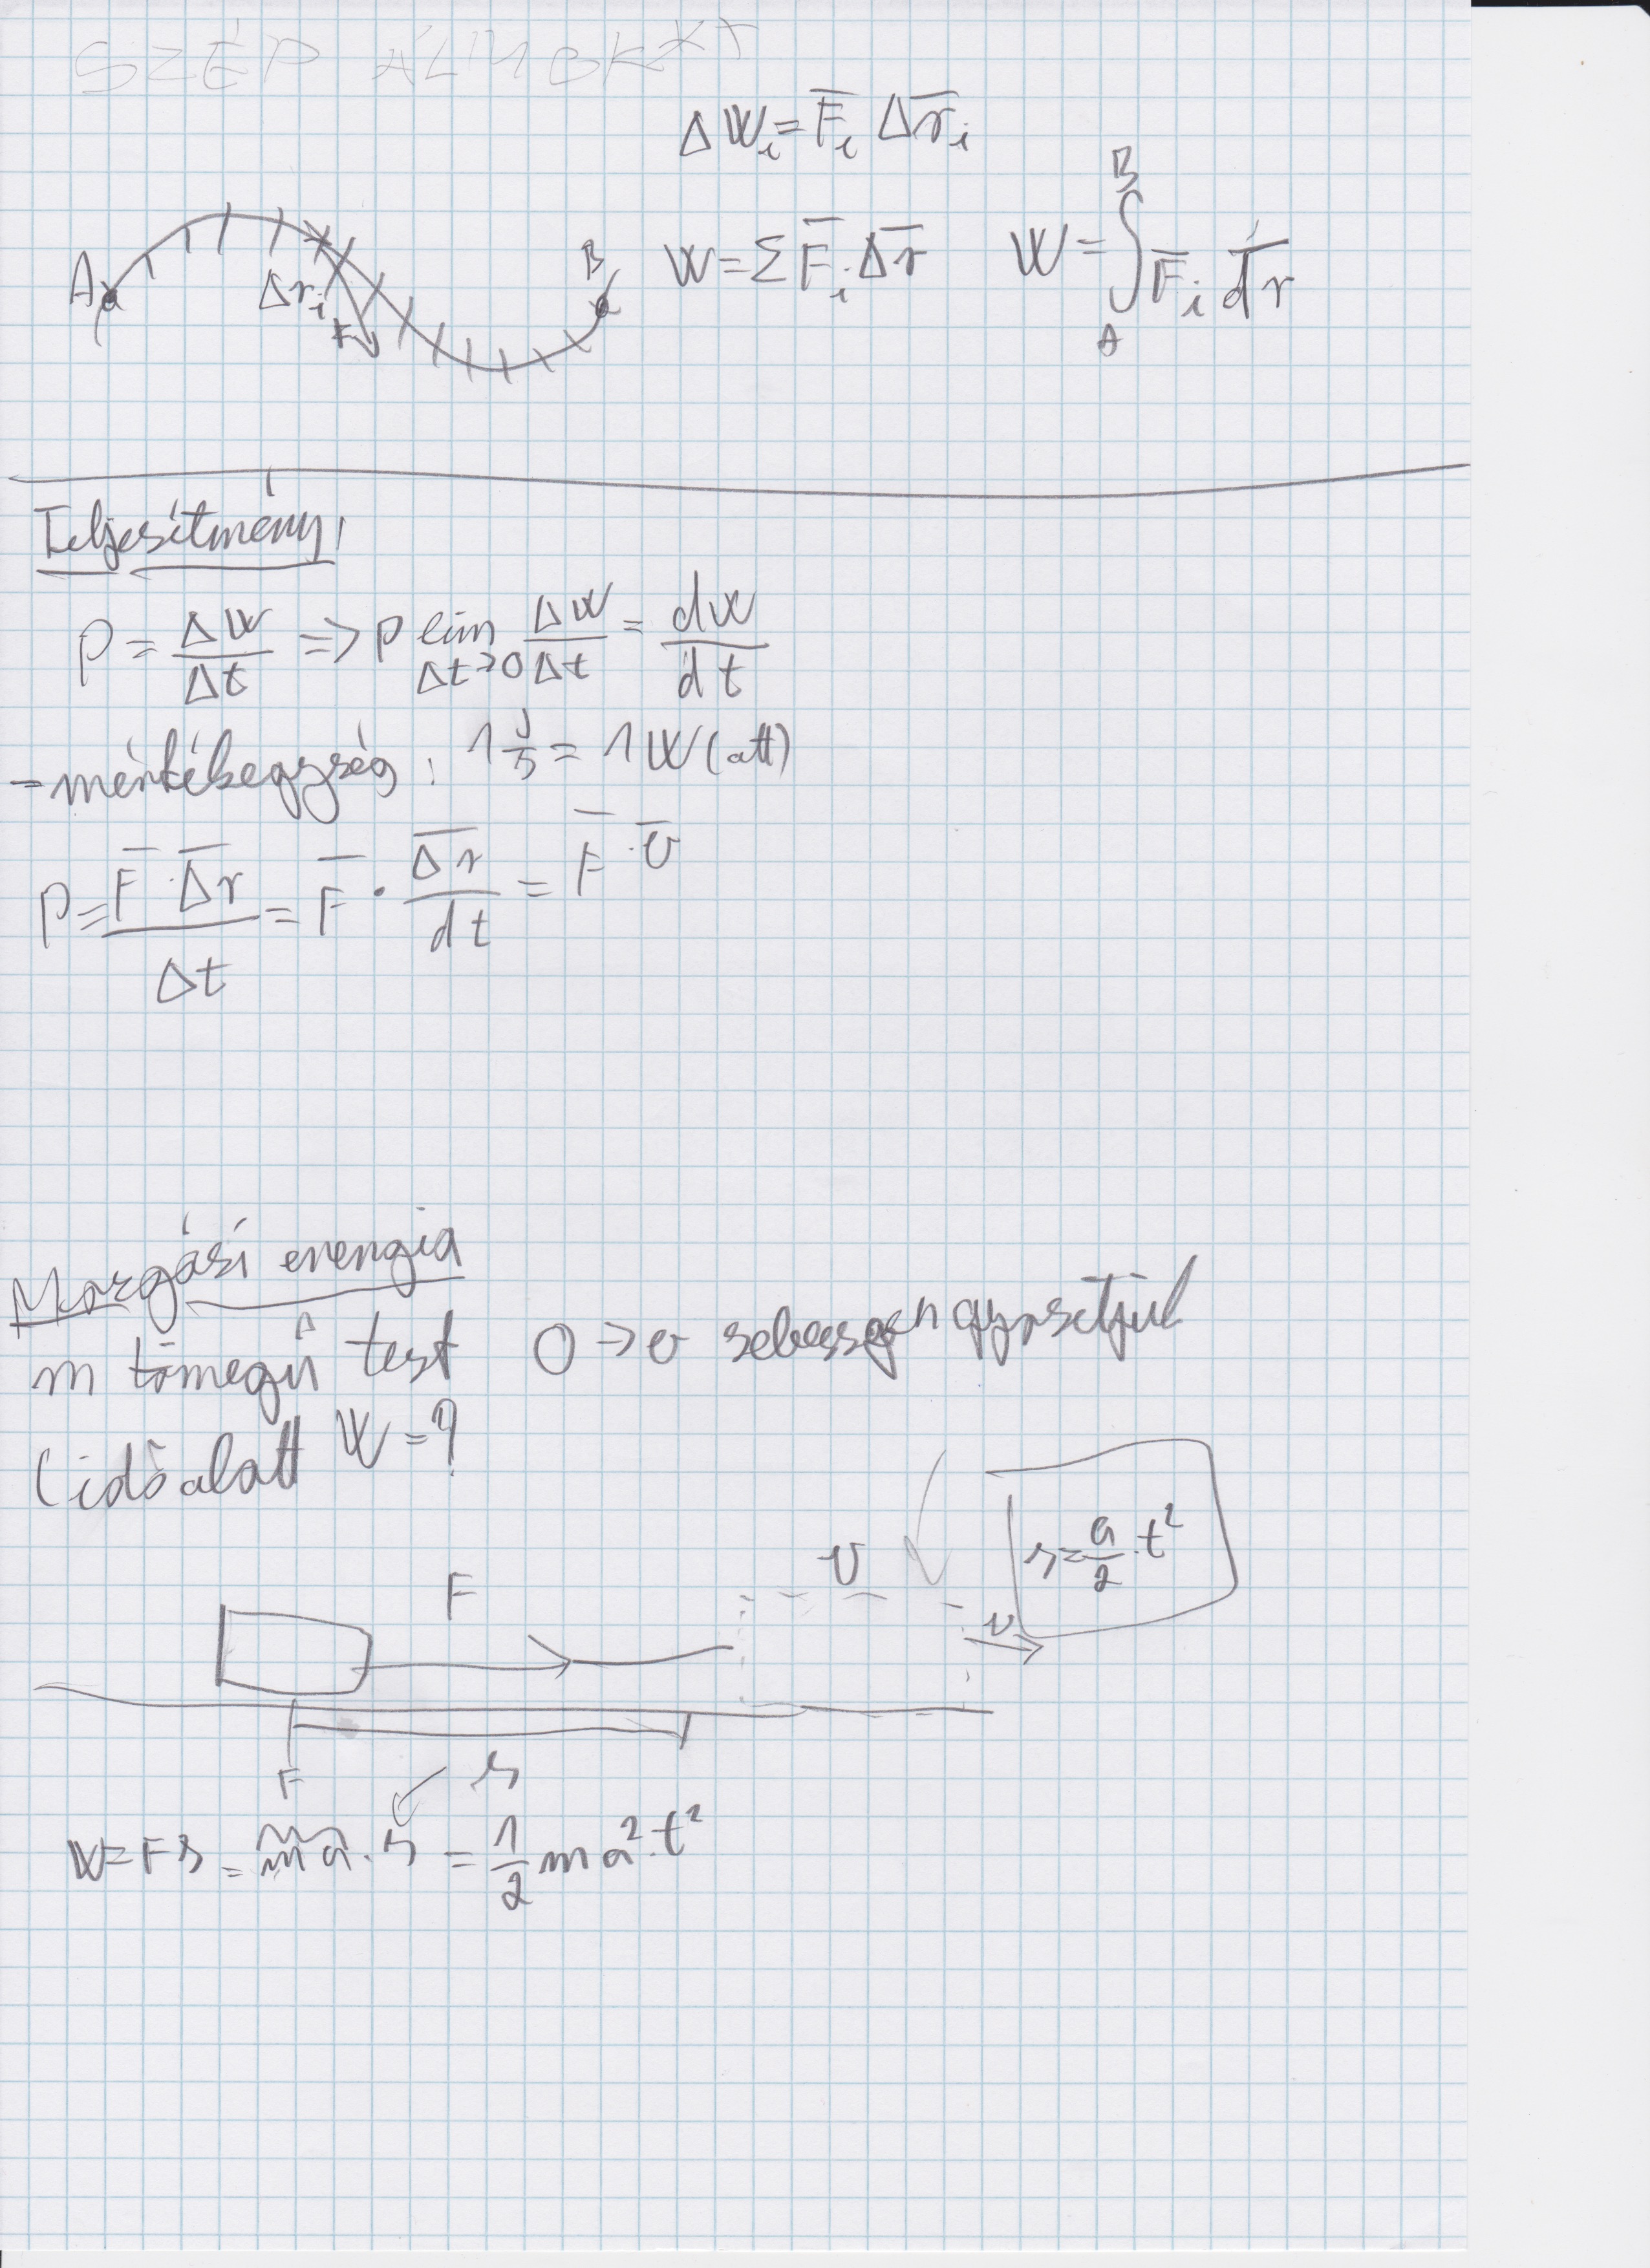 SZÉP
ΔW_i = F̅_i Δr̅_i
A B Δr_i F
W = Σ F̅_i Δr̅ W = ∫_A^B F̅_i d̅r̅
Teljesítmény
P = ΔW/Δt => P lim Δt→0 ΔW/Δt = dW/dt
- mértékegység: 1 J/s = 1 W(att)
P = F̅·Δ̅r̅/Δt = F̅ · Δ̅r̅/dt = F̅·v̅
Mozgási energia
m tömegű test 0 -> v sebességen gyorsítjuk
(idő alatt W = ?
s = a/2·t²
F v
v
F s
W = F s = m a · s = 1/2 m a²·t²